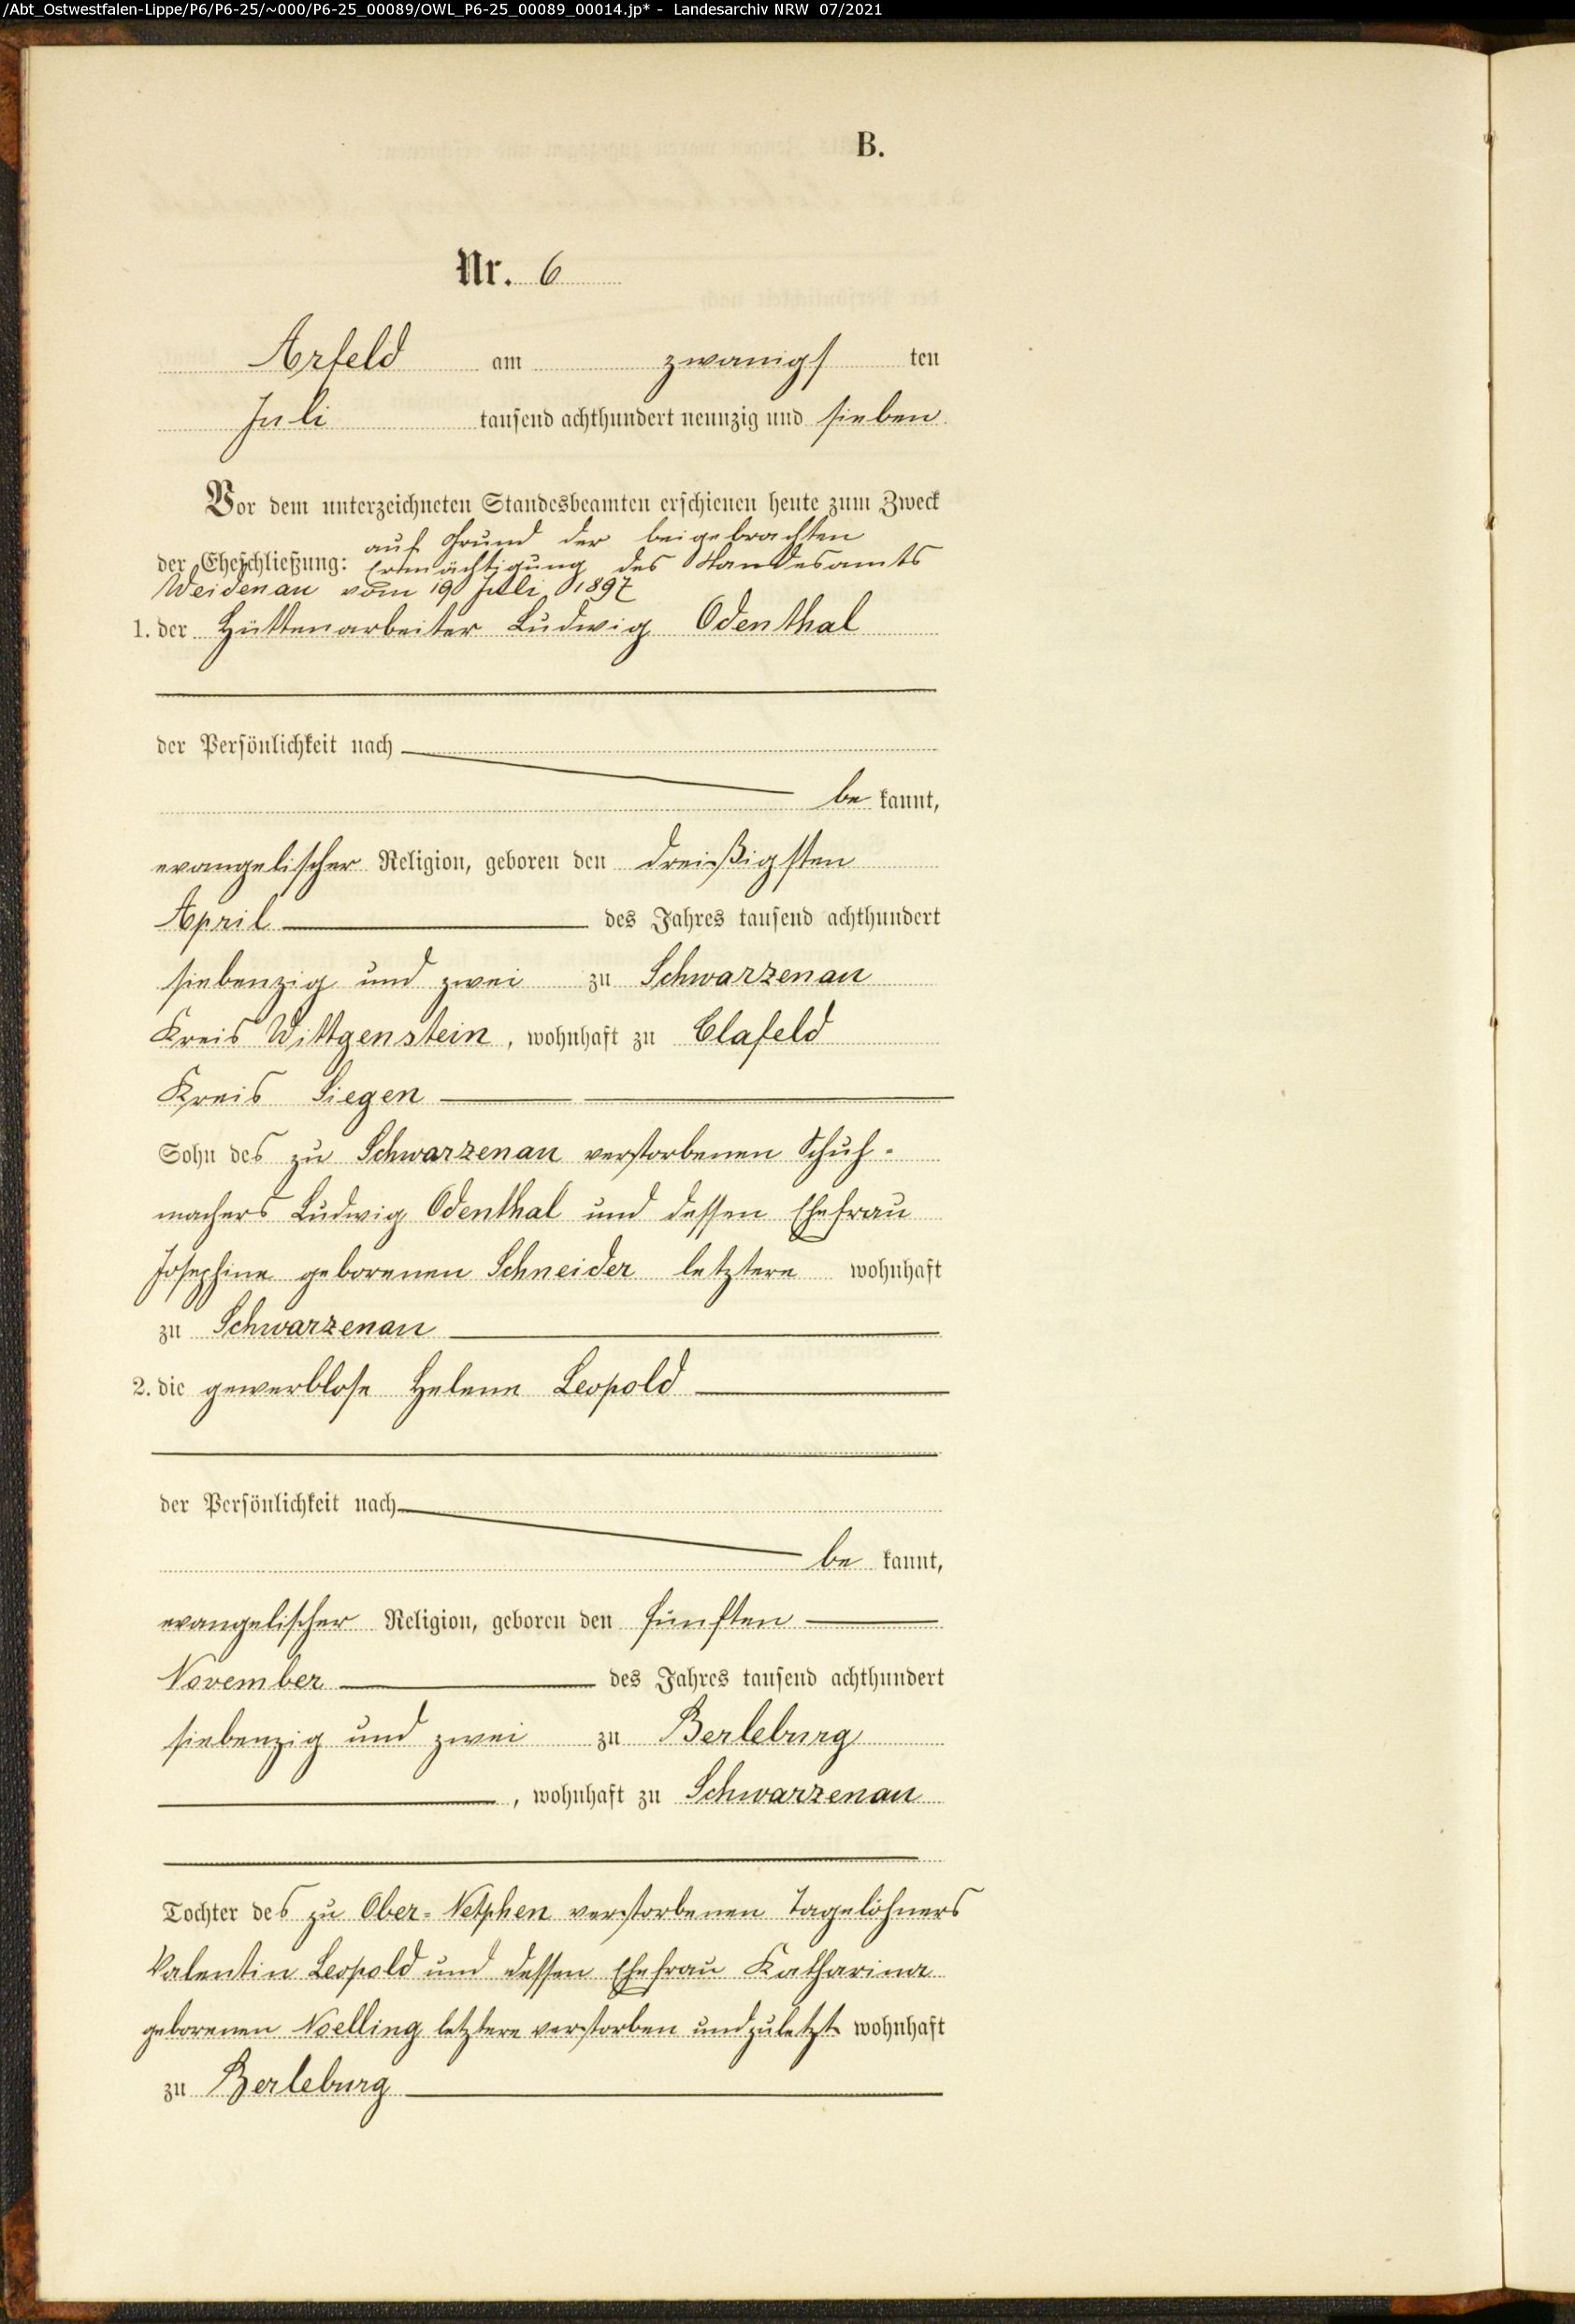 /Abt_Ostwestfalen-Lippe/P6/P6-25/~000/P6-25_00089/OWL_P6-25_00089_00014.jp* - Landesarchiv NRW 07/2021
B.
Nr. 6
Arfeld am zwanigs ten
Juli tausend achthundert neunzig und sieben
Vor dem unterzeichneten Standesbeamten erschienen heute zum Zweck
der Eheschließung: auf Grund der beigebrachten
Ermächtigung des Standesamts
Weidenau vom 19 Juli 1897
1. der Hüttenarbeiter Ludwig Odenthal
der Persönlichkeit nach
be kannt,
evangelischer Religion, geboren den dreißigsten
April des Jahres tausend achthundert
siebenzig und zwei zu Schwarzenau
Kreis Wittgenstein, wohnhaft zu Clafeld
Kreis Siegen
Sohn des zu Schwarzenau verstorbenen Schuh-
machers Ludwig Odenthal und dessen Ehefrau
Josephine geborenen Schneider letztere wohnhaft
zu Schwarzenau
2. die gewerblose Helene Leopold
der Persönlichkeit nach
be kannt,
evangelischer Religion, geboren den fünften
November des Jahres tausend achthundert
siebenzig und zwei zu Berleburg
, wohnhaft zu Schwarzenau
Tochter des zu Ober-Netphen verstorbenen Tagelöhners
Valentin Leopold und dessen Ehefrau Katharina
geborenen Noelling letztere verstorben und zuletzt wohnhaft
zu Berleburg